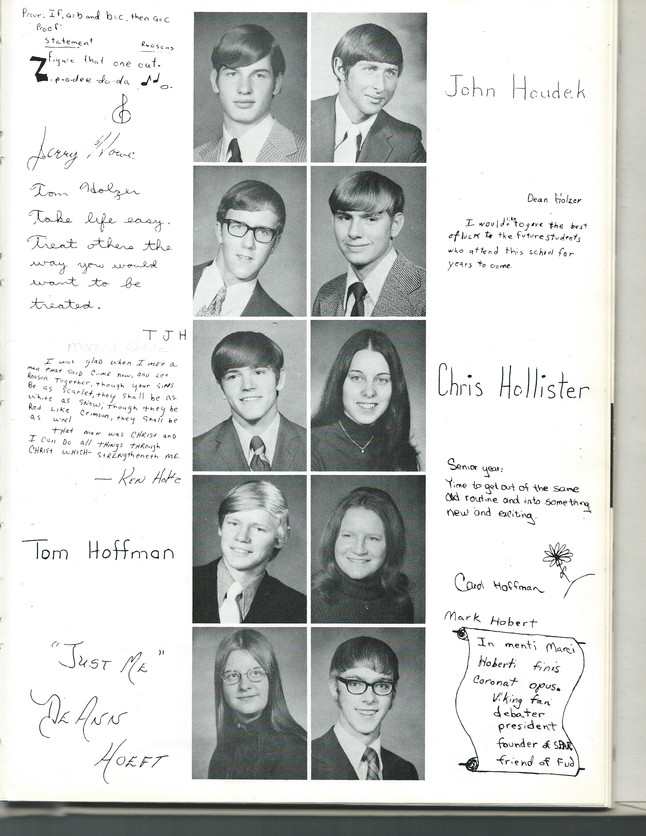 Prove: If, a>b and b>c, then a>c
Proof:
Statement Reasons
figure that one out.
Zipadee do da
Jerry Howe
Tom Holzer
Take life easy.
Treat others the
way you would
want to be
treated.
TJH
I was glad when I met a
man that said Come now, and let
Reason Together, though your SINS
Be as Scarlet, they shall be as
white as SNOW, though they be
Red Like Crimson, they shall be
as wool
THAT man was CHRIST and
I CAN DO all THINGS THROUGH
CHRIST WHICH STRENGTHENETH ME
— KEN
Tom Hoffman
"JUST ME"
DE ANN
HOEFT
John Houdek
Dean Holzer
I would like to gave the best
of luck to the future students
who attend this school for
years to come.
Chris Hollister
Senior year:
Time to get out of the same
old routine and into something
new and exciting.
Carol Hoffman
Mark Hobert
In menti Marci
Hoberti finis
Coronat opus.
Viking fan
debater
president
founder of SPAR
friend of Fud